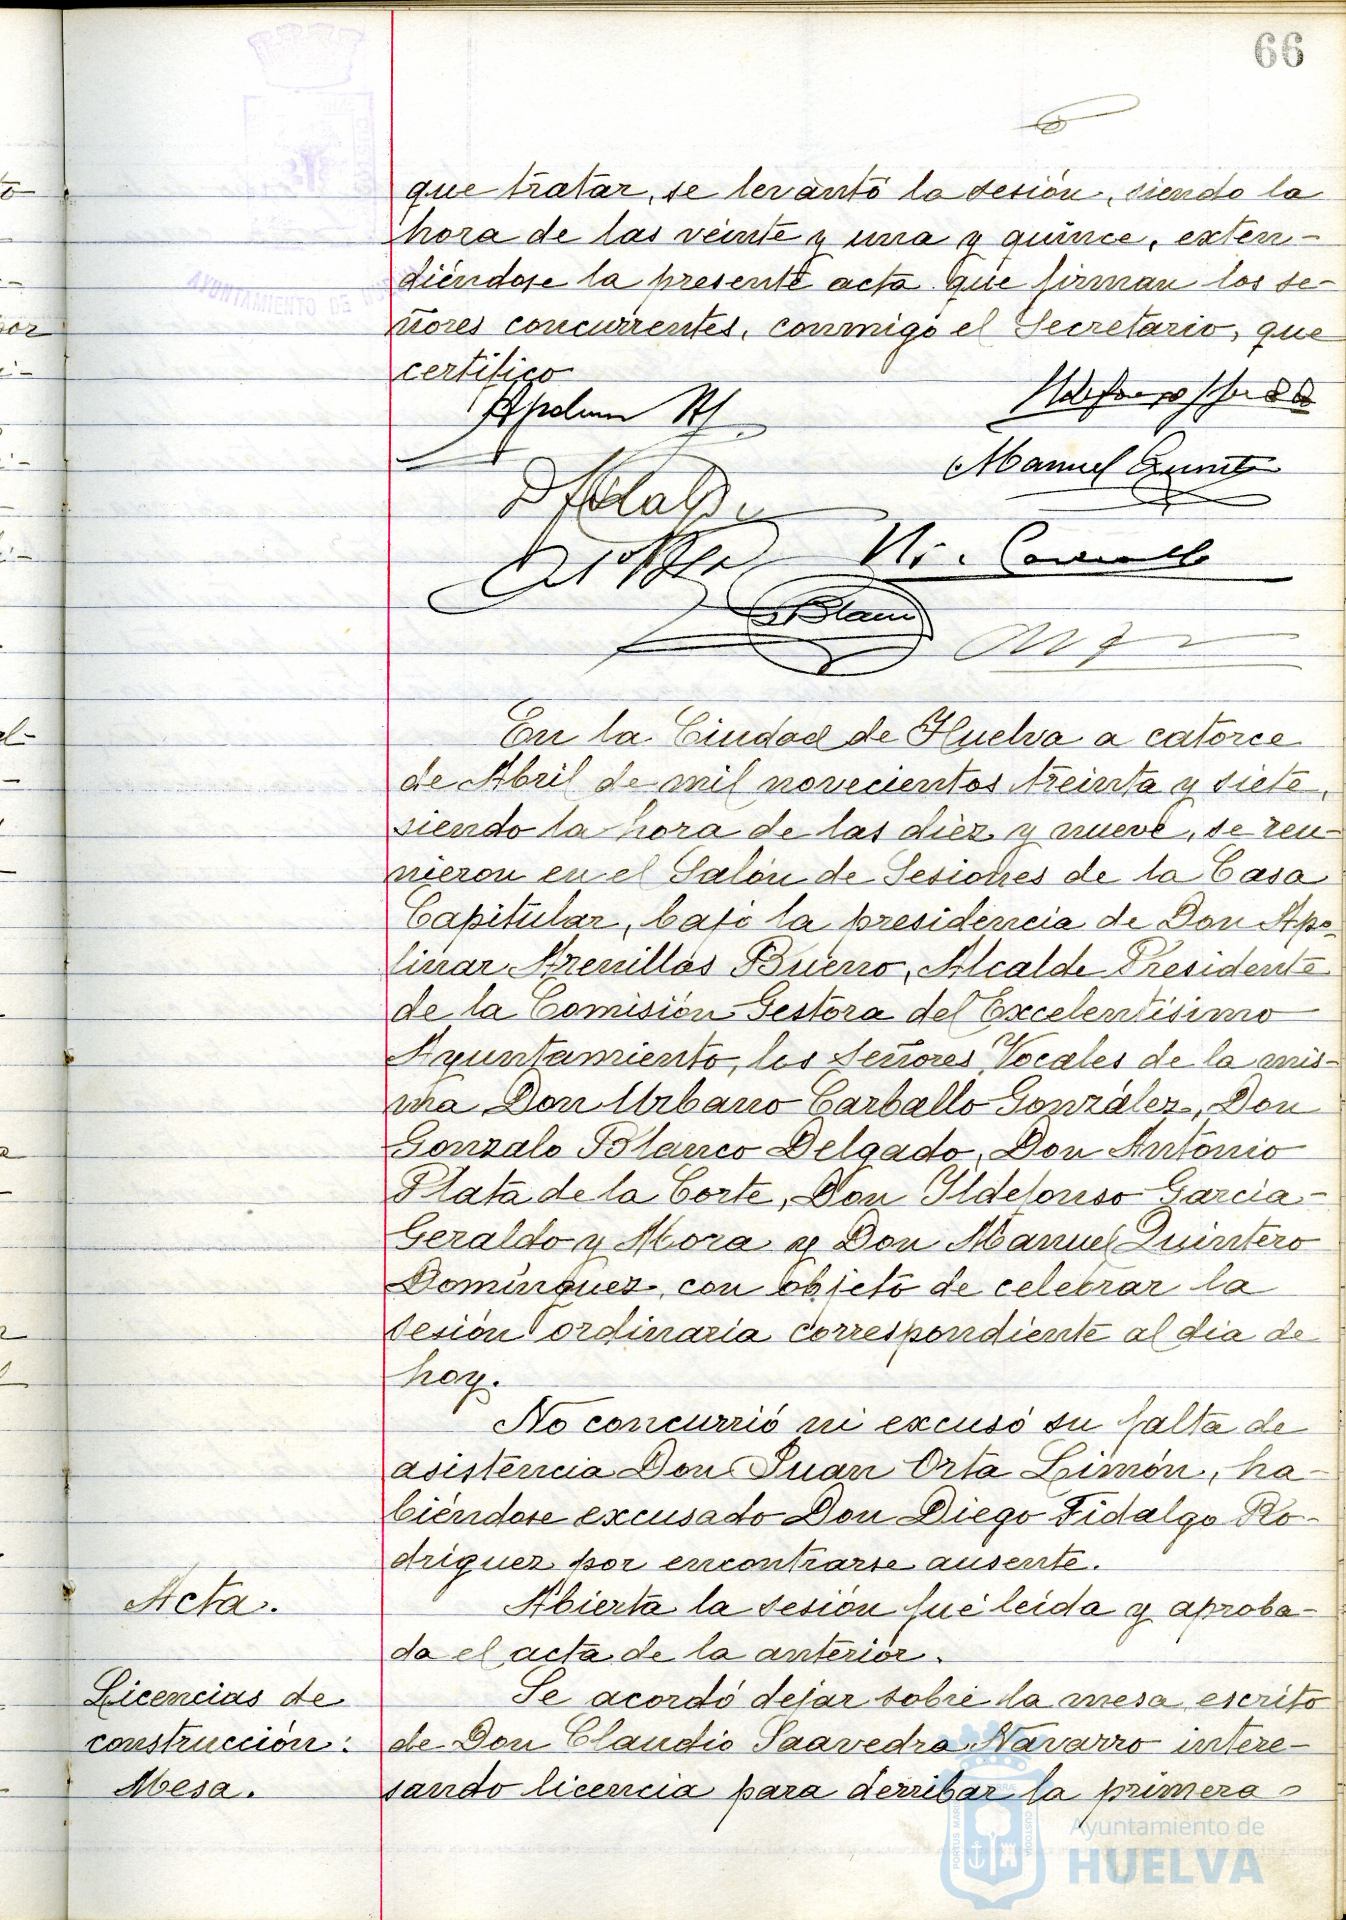 66
que tratar, se levantó la sesión, siendo la
hora de las veinte y una y quince, exten-
diéndose la presente acta que firman los se-
ñores concurrentes, conmigo el Secretario, que
certifico
Manuel Quintero
D Fidalgo
Blanco
En la Ciudad de Huelva a catorce
de Abril de mil novecientos treinta y siete,
siendo la hora de las diez y nueve, se reu-
nieron en el Salón de Sesiones de la Casa
Capitular, bajo la presidencia de Don Apo-
linar Arenillas Bueno, Alcalde Presidente
de la Comisión Gestora del Excelentísimo
Ayuntamiento, los Señores Vocales de la mis-
ma Don Urbano Carballo González, Don
Gonzalo Blanco Delgado, Don Antonio
Plata de la Corte, Don Ildefonso García-
Geraldo y Mora y Don Manuel Quintero
Domínguez, con objeto de celebrar la
sesión ordinaria correspondiente al dia de
hoy.
No concurrió ni excusó su falta de
asistencia Don Juan Orta Limón, ha-
biéndose excusado Don Diego Fidalgo Ro-
driguez por encontrarse ausente.
Acta.
Abierta la sesión fué leída y aproba-
da el acta de la anterior.
Licencias de
construcción:
Mesa.
Se acordó dejar sobre la mesa escrito
de Don Claudio Saavedra Navarro intere-
sando licencia para derribar la primera
AYUNTAMIENTO DE
Ayuntamiento de
HUELVA